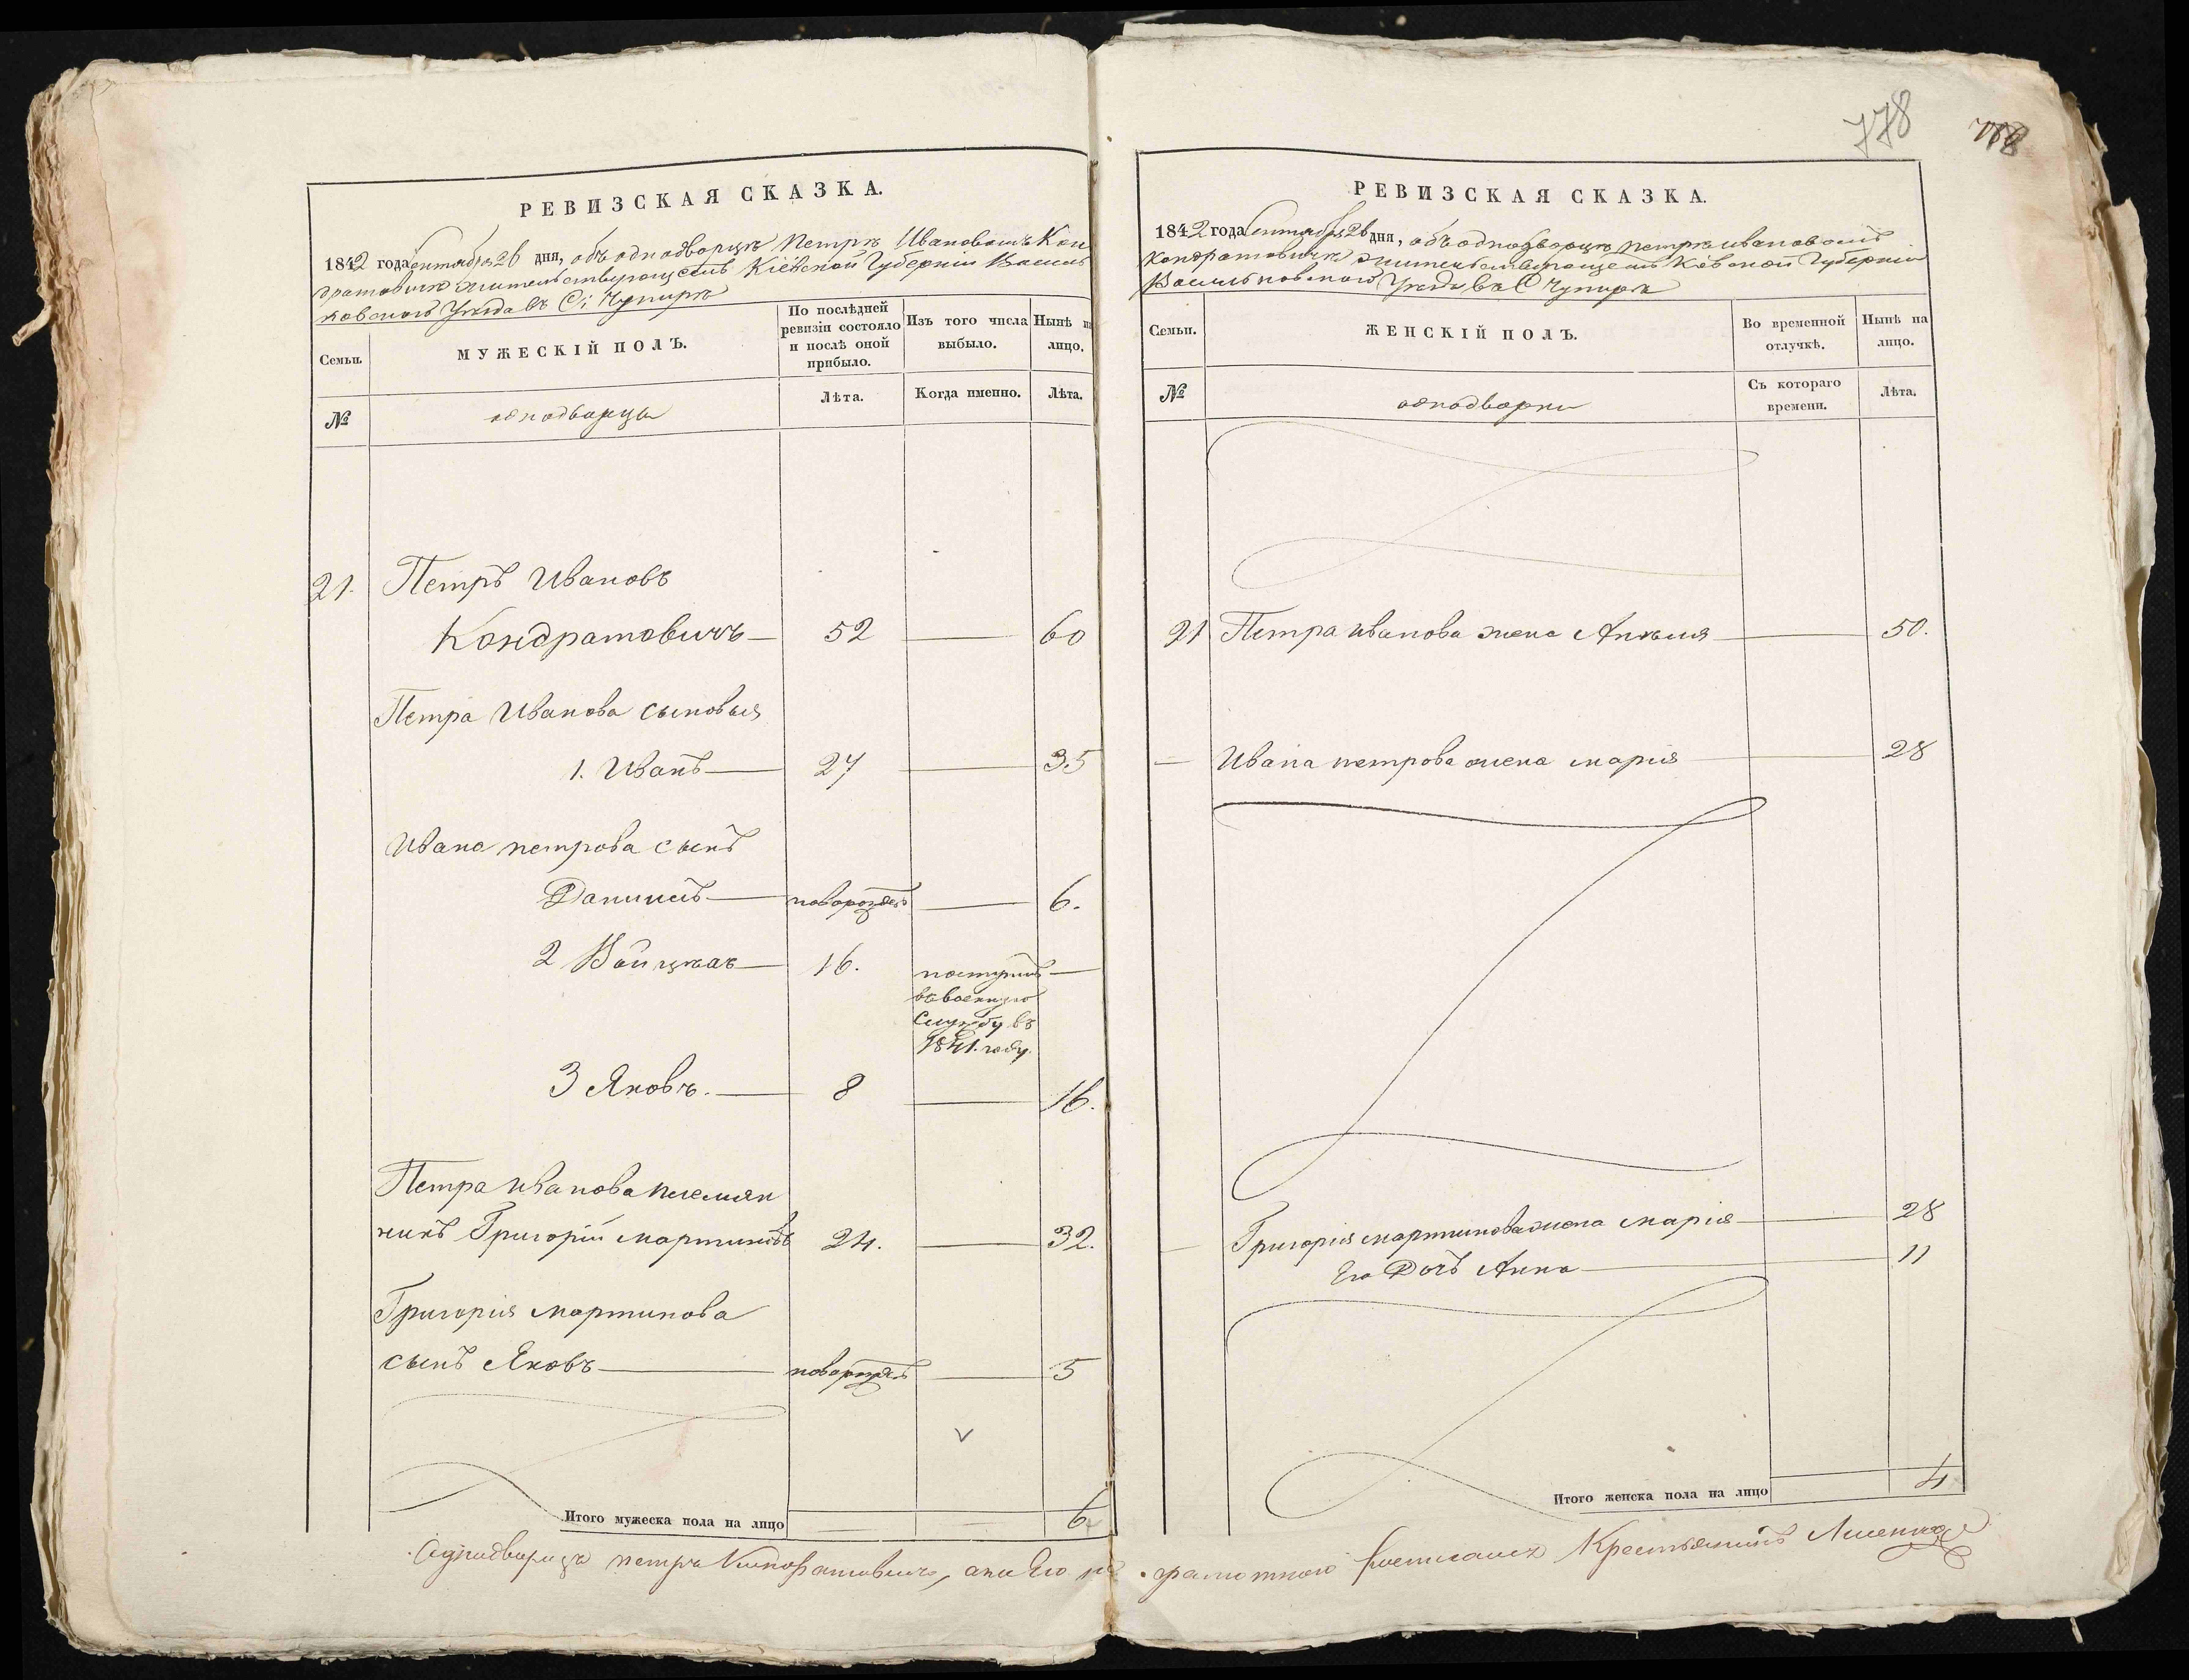 778
РЕВИЗСКАЯ СКАЗКА.
1842 года Сентября 26 дня, объ однодворце Петре Ивановомъ Кон
дратовиче жительствующемъ Кіевской Губерніи Василь
ковскомъ Уезде въ С: Чупире
Семьи.
МУЖЕСКІЙ ПОЛЪ.
По послѣдней ревизіи состояло и послѣ оной прибыло.
Изъ того числа выбыло.
Нынѣ на лицо.
№
однодворцы
Лѣта.
Когда именно.
Лѣта.
21. Петръ Ивановъ
Кондратовичъ 52 60
Петра Иванова сыновья
1. Иванъ 27 35
Ивана петрова сынъ
Даниилъ новорожденъ 6.
2 Войцехъ 16. поступилъ
въ военную
службу въ
1841. году.
3 Яковъ. 8 16.
Петра Иванова племян
никъ Григорій мартиновъ 24. 32.
Григорія мартинова
сынъ Яковъ новорожденъ 5
Итого мужеска пола на лицо 6
РЕВИЗСКАЯ СКАЗКА.
1842 года Сентября 26 дня, объ однодворце петре ивановомъ
Кондратовиче жительствующемъ Кіевской Губерніи
Васильковскомъ Уезде въ С Чупире
Семьи.
ЖЕНСКІЙ ПОЛЪ.
Во временной отлучкѣ.
Нынѣ на лицо.
№
однодворки
Съ котораго времени.
Лѣта.
21 Петра иванова жена Анелия 50.
Ивана петрова жена марія 28
Григорія мартинова жена марія 28
Его Дочъ Анна 11
Итого женска пола на лицо 4
Однодворецъ петръ Кондратовичъ, а на Его не грамотного росписался Крестьянинъ